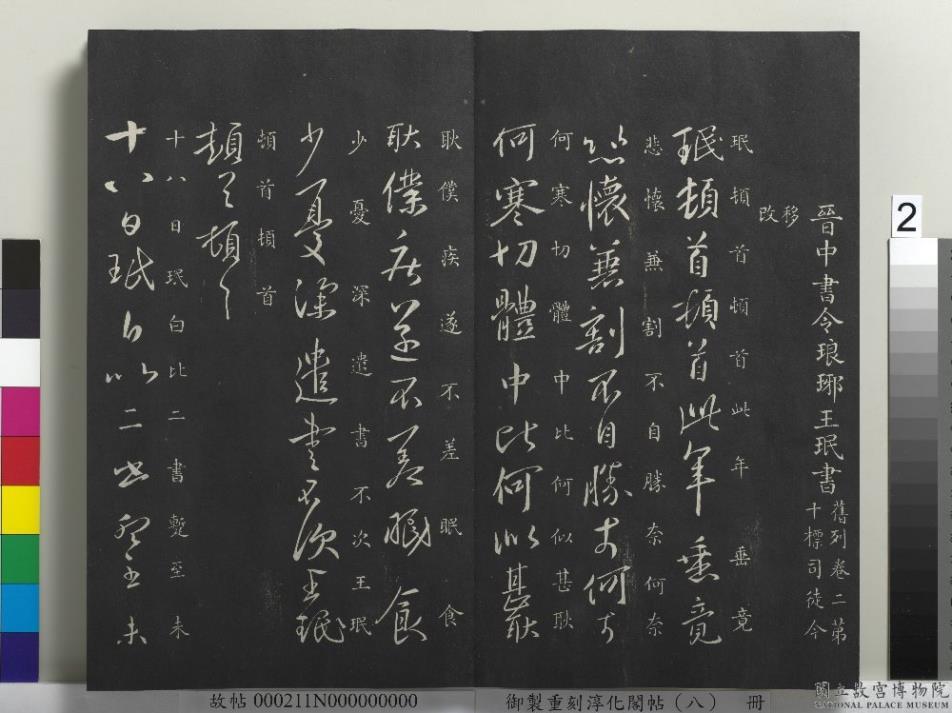 晉中書令琅瑘王珉書
舊列卷二第
十標司徒今
移
改
珉頓首頓首此年垂竟
珉頓首頓首此年垂竟
悲懷兼割不自勝奈何奈
悲懷兼割不自勝奈何奈
何寒切體中比何似甚耿
何寒切體中比何似甚耿
耿僕疾遂不差眠食
耿僕疾遂不差眠食
少憂深遣書不次王珉
少憂深遣書不次王珉
頓首頓首
頓首頓首
十八日珉白比二書蹔至未
十八日珉白比二書蹔至未
2
故帖 000211N000000000
御製重刻淳化閣帖（八） 冊
國立故宮博物院
NATIONAL PALACE MUSEUM